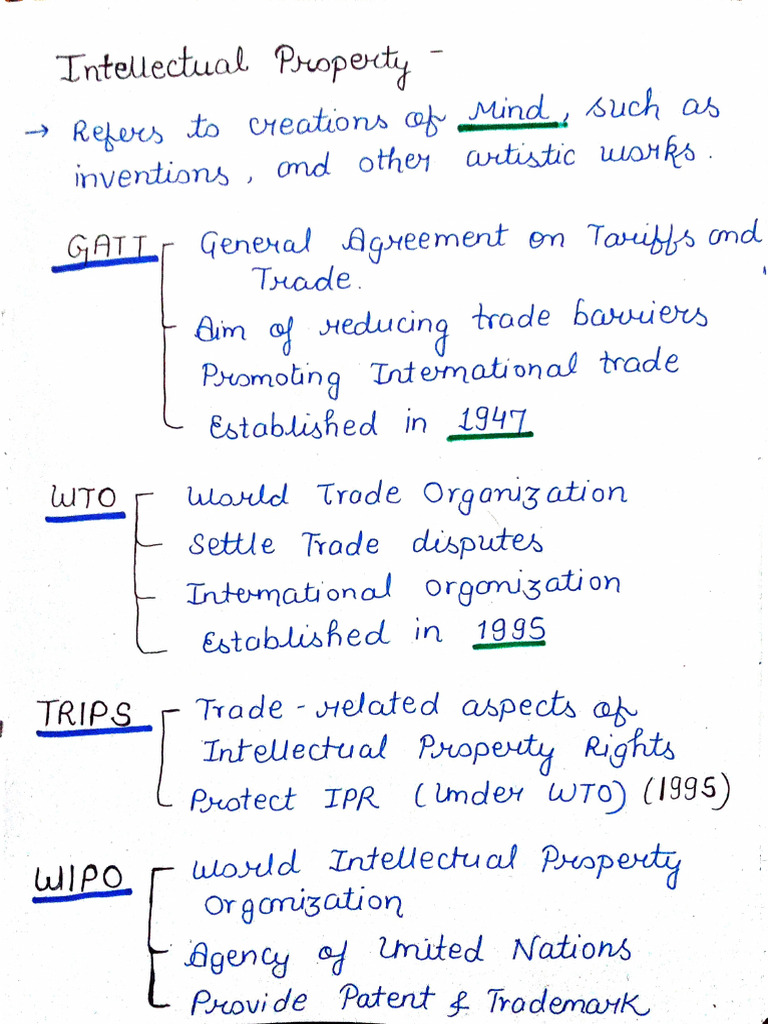 Intellectual Property -
→ Refers to creations of Mind, such as
inventions, and other artistic works.
GATT General Agreement on Tariffs and
Trade.
Aim of reducing trade barriers
Promoting International trade
Established in 1947
WTO World Trade Organization
Settle Trade disputes
International organization
Established in 1995
TRIPS Trade-related aspects of
Intellectual Property Rights
Protect IPR (Under WTO) (1995)
WIPO World Intellectual Property
Organization
Agency of United Nations
Provide Patent & Trademark